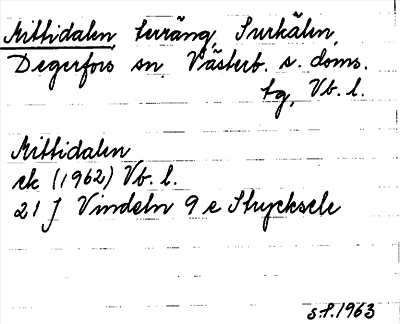 Mittidalen, terräng, Surkålen,
Degerfors sn, Västerb. s. doms.
tg, Vb. l.
Mittidalen
ek (1962) Vb. l.
21 J Vindeln 9 e Strycksele
s.f. 1963